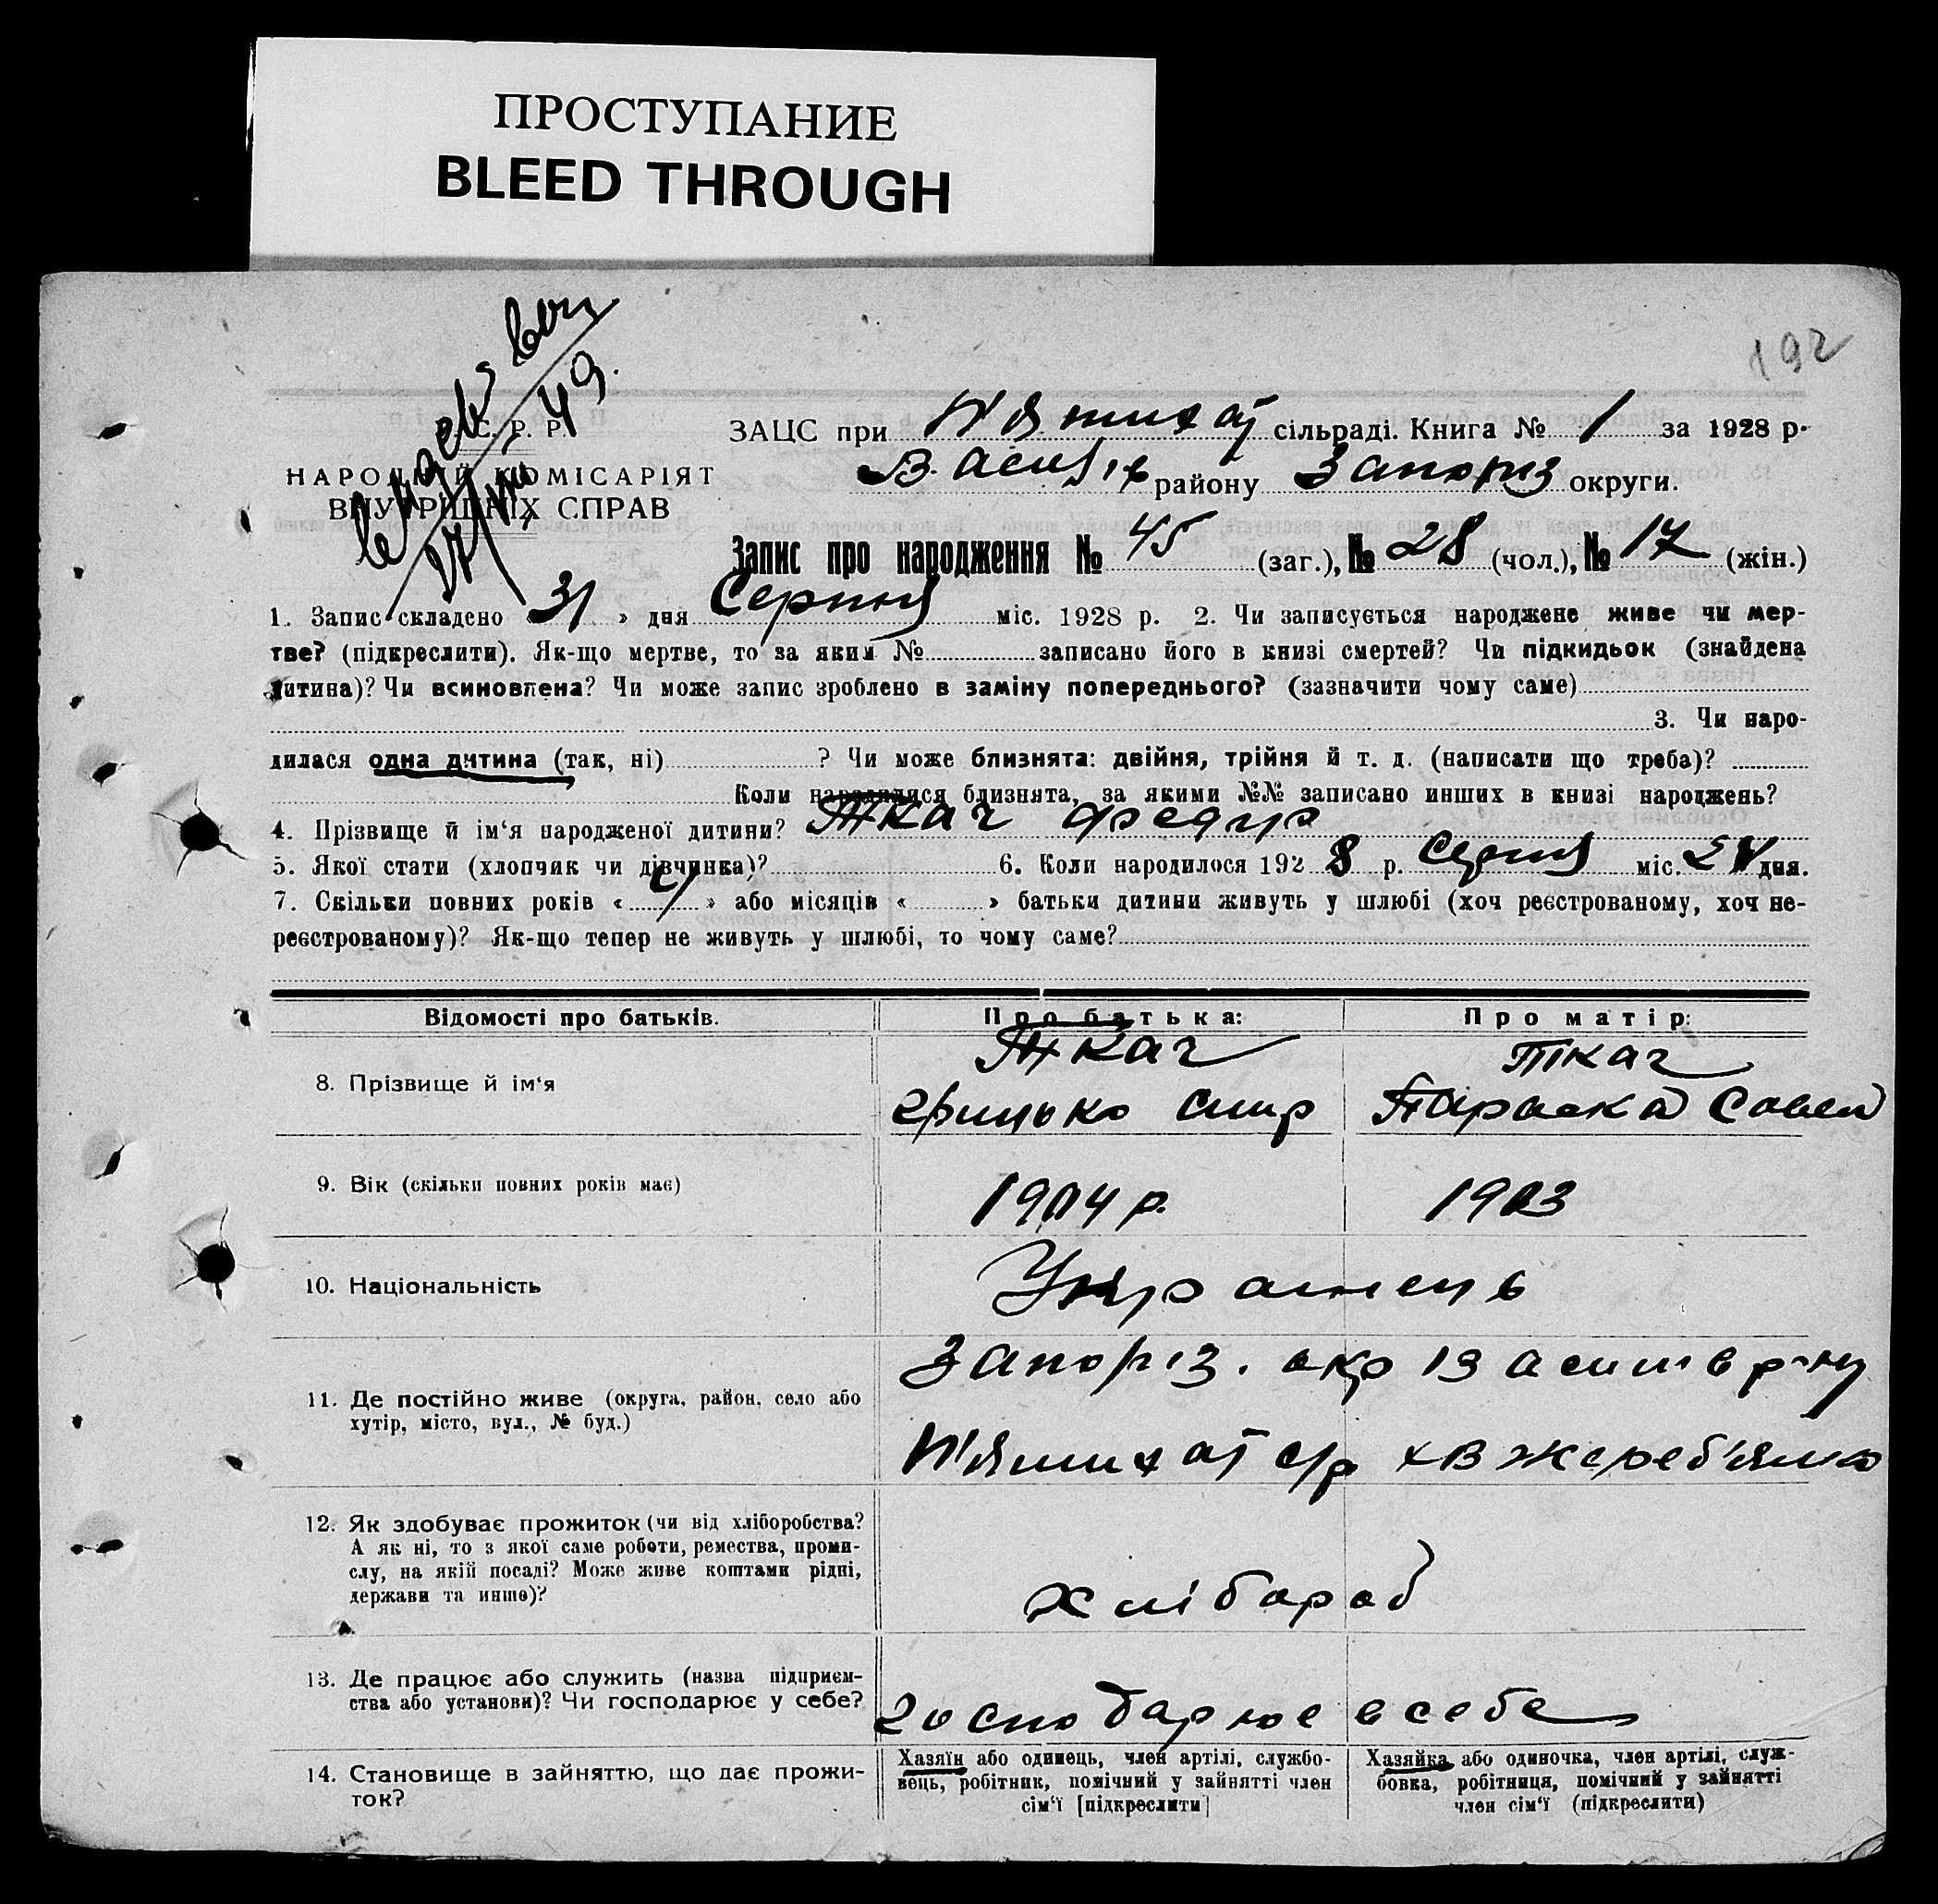 ПРОСТУПАНИЕ
BLEED THROUGH
192
С. Р. Р.
НАРОДНІЙ КОМІСАРІЯТ
ВНУТРІШНІХ СПРАВ
ЗАЦС при П'ятихат сільраді. Книга № 1 за 1928 р.
Василів району Запоріз округи.
Запис про народження № 45 (заг.), № 28 (чол.), № 17 (жін.)
1. Запис складено « 31 » дня Серпня міс. 1928 р. 2. Чи записується народжене живе чи мер-
тве? (підкреслити). Як-що мертве, то за яким № записано його в книзі смертей? Чи підкидьок (знайдена
дитина)? Чи всиновлена? Чи може запис зроблено в заміну попереднього? (зазначити чому саме)
3. Чи наро-
дилася одна дитина (так, ні) ? Чи може близнята: двійня, трійня й т. д. (написати що треба)?
Коли народилися близнята, за якими №№ записано инших в книзі народжень?
4. Прізвище й ім‘я народженої дитини? Ткач Федир
5. Якої стати (хлопчик чи дівчинка)? 6. Коли народилося 192 8 р. Серпня міс. дня.
7. Скільки повних років « » або місяців « » батьки дитини живуть у шлюбі (хоч реєстрованому, хоч не-
реєстрованому)? Як-що тепер не живуть у шлюбі, то чому саме?
Відомості про батьків. Про батька: Про матір:
8. Прізвище й ім‘я Ткач Грицько Спир Ткач Параска Савел
9. Вік (скільки повних років має) 1904 р. 1903
10. Національність Украінець
11. Де постійно живе (округа, район, село або
хутір, місто, вул., № буд.)
Запоріз. окр Василів р-ну
П'ятихат с/р
12. Як здобуває прожиток (чи від хліборобства?
А як ні, то з якої саме роботи, ремества, проми-
слу, на якій посаді? Може живе коштами рідні,
держави та инше)?
хлібороб
13. Де працює або служить (назва підприєм-
ства або установи)? Чи господарює у себе?
господарює в себе
14. Становище в зайняттю, що дає прожи-
ток?
Хазяїн або одинець, член артілі, службо-
вець, робітник, помічний у зайнятті член
сім‘ї [підкреслити]
Хазяйка або одиночка, член артілі, служ-
бовка, робітниця, помічний у зайнятті
член сім‘ї (підкреслити)